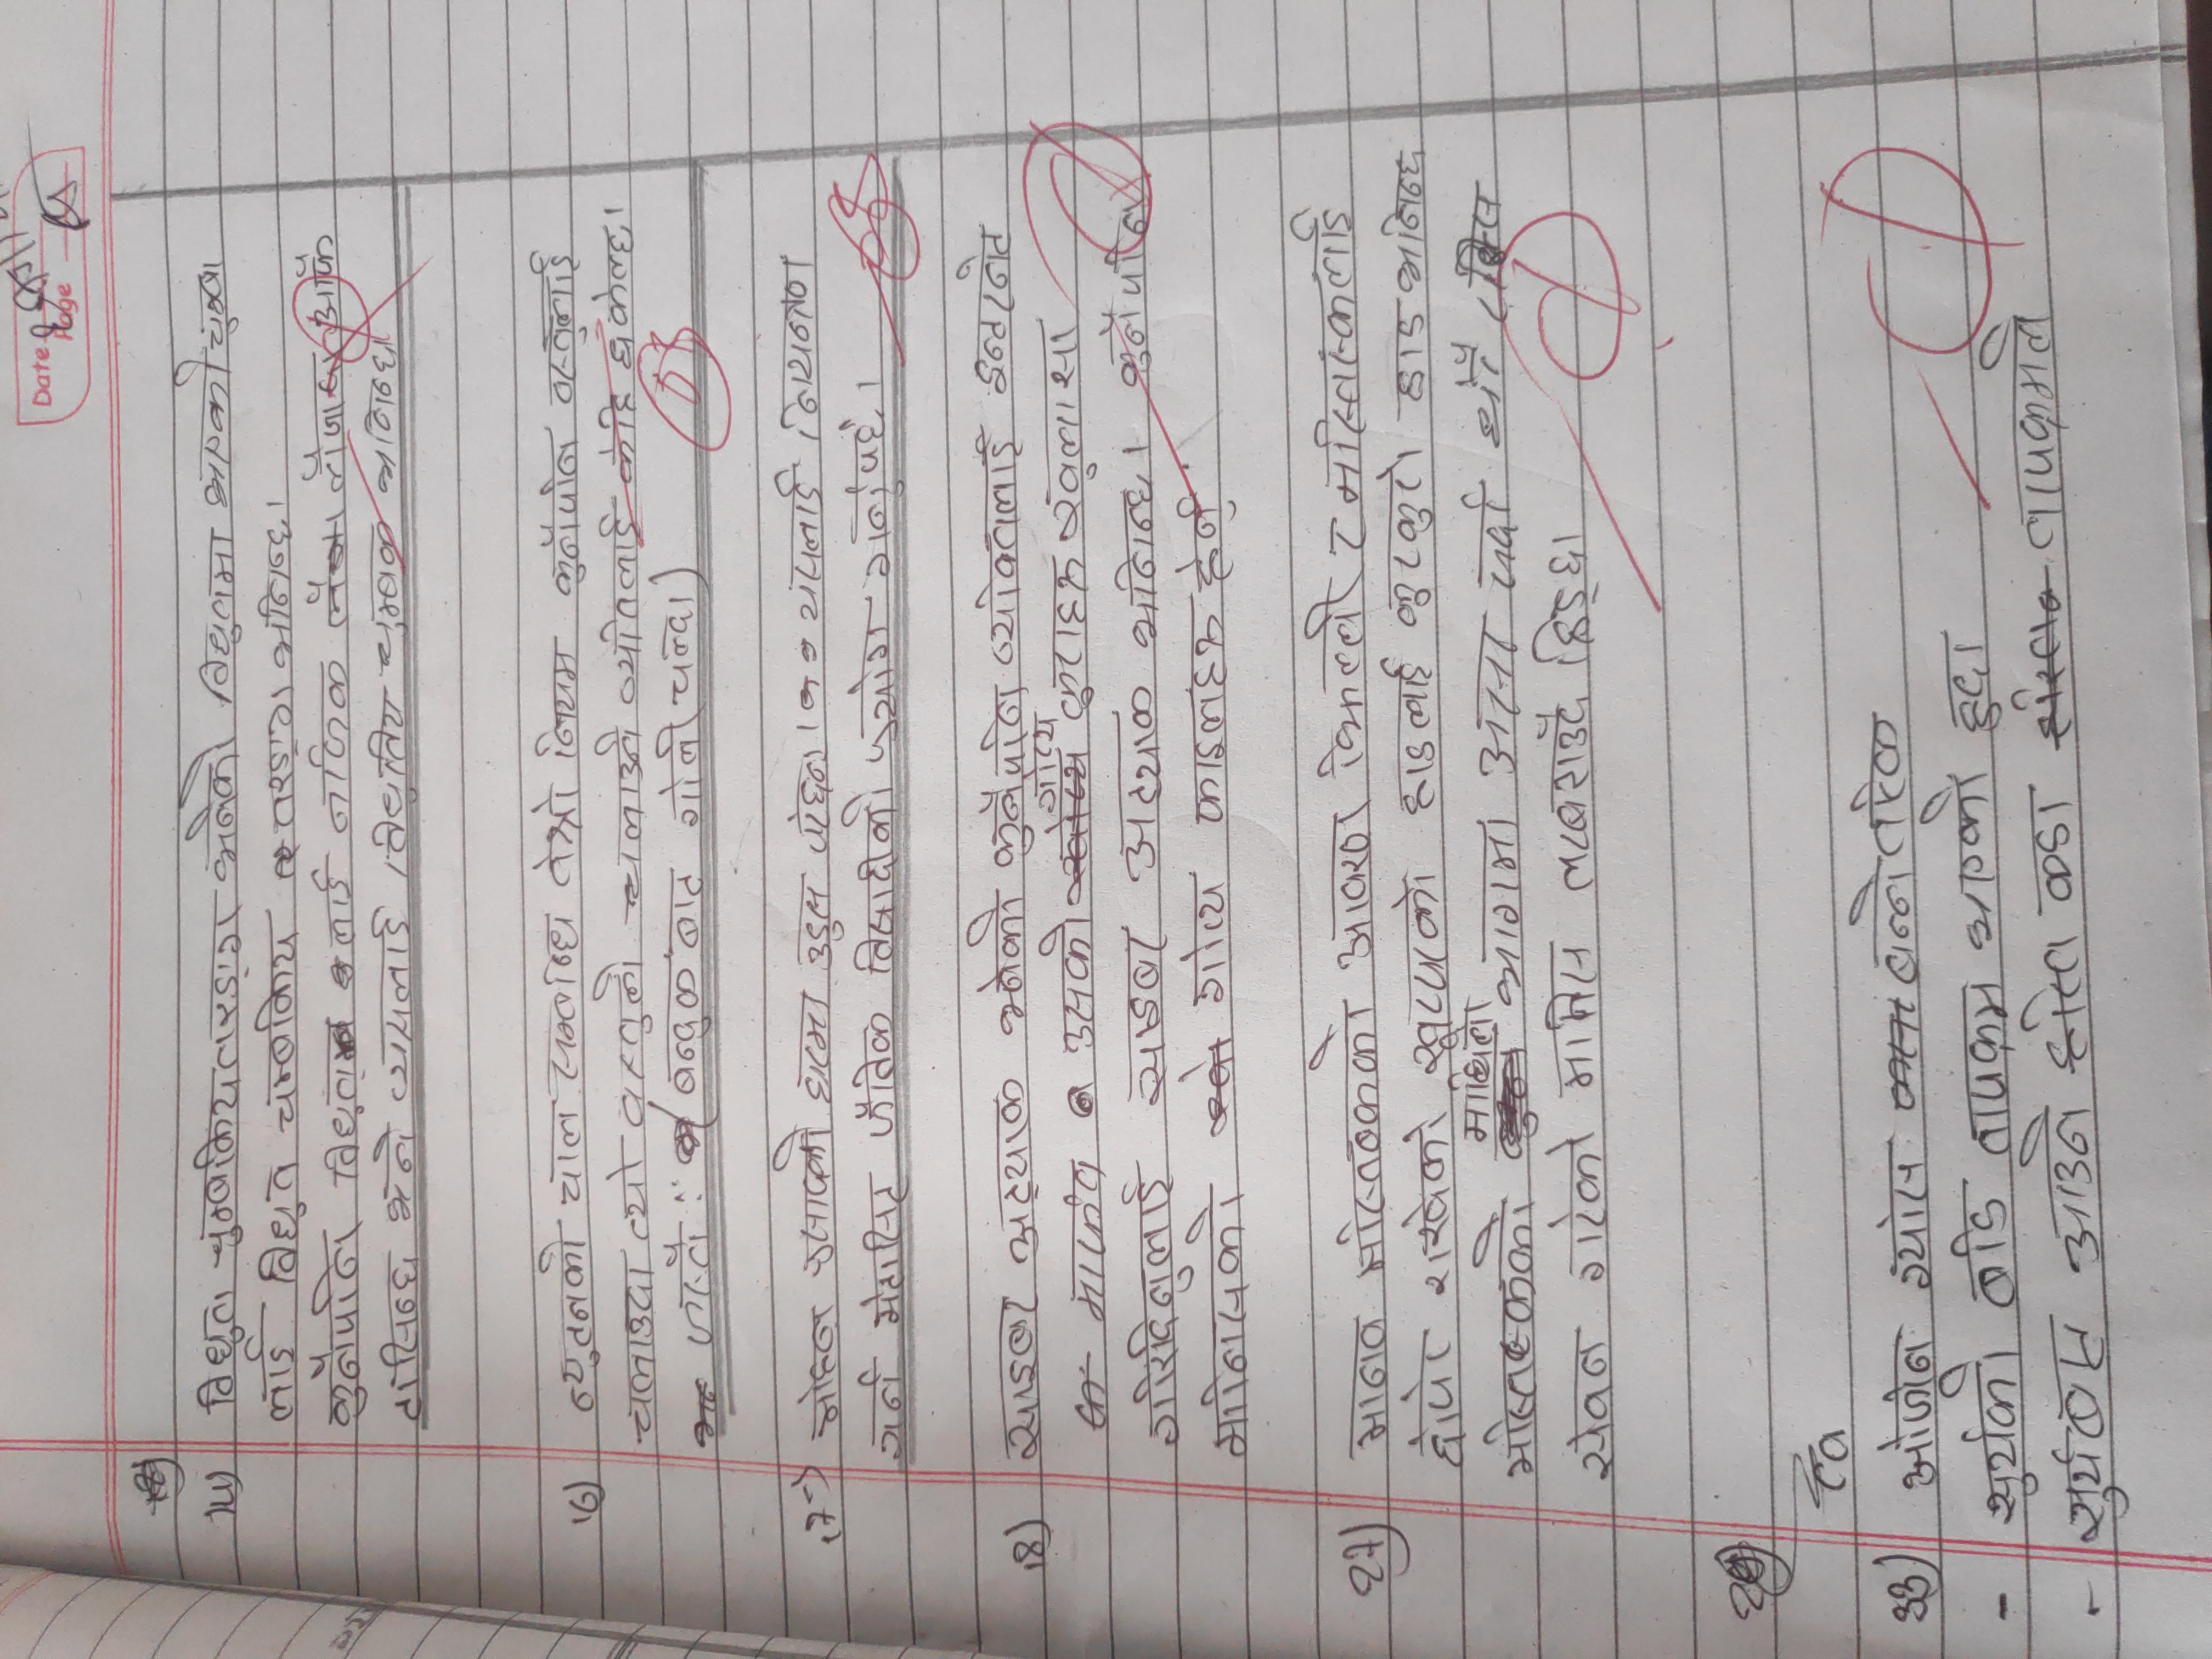 Date
Page
14) विधुत चुम्बकियतरङ्ग भनेको विधुतमा भएको चुम्बा
लाई विधुत चम्बकिय तरङ्ग भनिन्छ।
कुनैपनि विधुत लाई नजिक लैजादा आफै
टाँसिन्छ भने यसलाई विधुतिय चुम्बक भनिन्छ।
16) न्युटनको चाल सम्बन्धि तेश्रो नियम कुनैपनि वस्तुलाई
चलाउदा त्यो वस्तुले चलाउने व्यतिलाई केहि धकेल्छ।
जस्तै : बन्दुक बाट गोली चल्दा)
17) मोहन प्रसादको घरमा उडुस परेछन। यसलाई नियन्त्रण
गर्न मेटासिट जैविक विषादीको प्रयोग गर्नुपर्छ।
18) साइबर अट्याक भनेको कुनैपनि व्यक्तिलाई इन्टरनेट
मार्फत उसको गोप्य कुराहरु खुलासा
गरिदिनुलाई साइबर अट्याक भनिन्छ। कुनैपनि
मानिसको गोप्य फाइलहरु हेर्नु
27) मानव मस्तिष्कको आवरण झिल्ली र मस्तिस्कलाई
छोपेर राखेको खप्परको हाडलाई कुरकुरे हाड भनिन्छ
मस्तिष्कको माथिल्लो भागमा असर पर्दा धेरै रक्सि
सेवन गरेको मानिस लरबराउदै हिड्छ।
33) ओजोन ग्यास बन्नेतरिक
- सुर्यको बढि तापक्रम भएको हुदा
- सुर्यबाट आउने कडा तापक्रमले